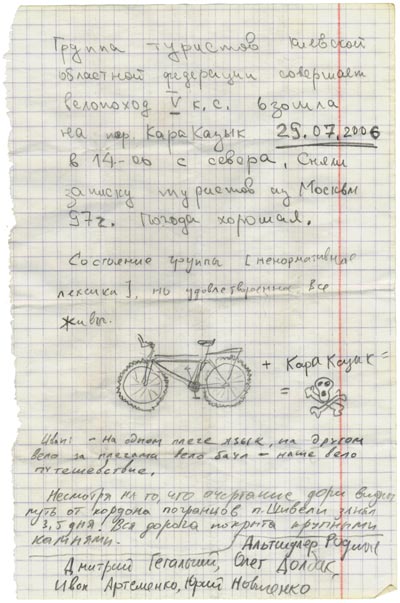 Группа туристов Киевской
областной федерации совершает
велопоход V к.с. взошла
на пер. Кара Казык 25.07.2006
в 14-00 с севера. Сняли
записку туристов из Москвы
97г. Погода хорошая.
Состояние группы [ненормативная
лексика], но удовлетворение все
живы.
+ Кара Казык =
=
- На одном плече язык, на другом
вело за плечами вело баул - наше вело
путешествие.
Несмотря на то, что очертание дороги видны
путь от кордона погранцов п. Шивели занял
3,5 дня. Вся дорога покрыта крупными
камнями.
Альтшулер Родион
Дмитрий Олег Долбак,
Иван Артёменко, Юрий